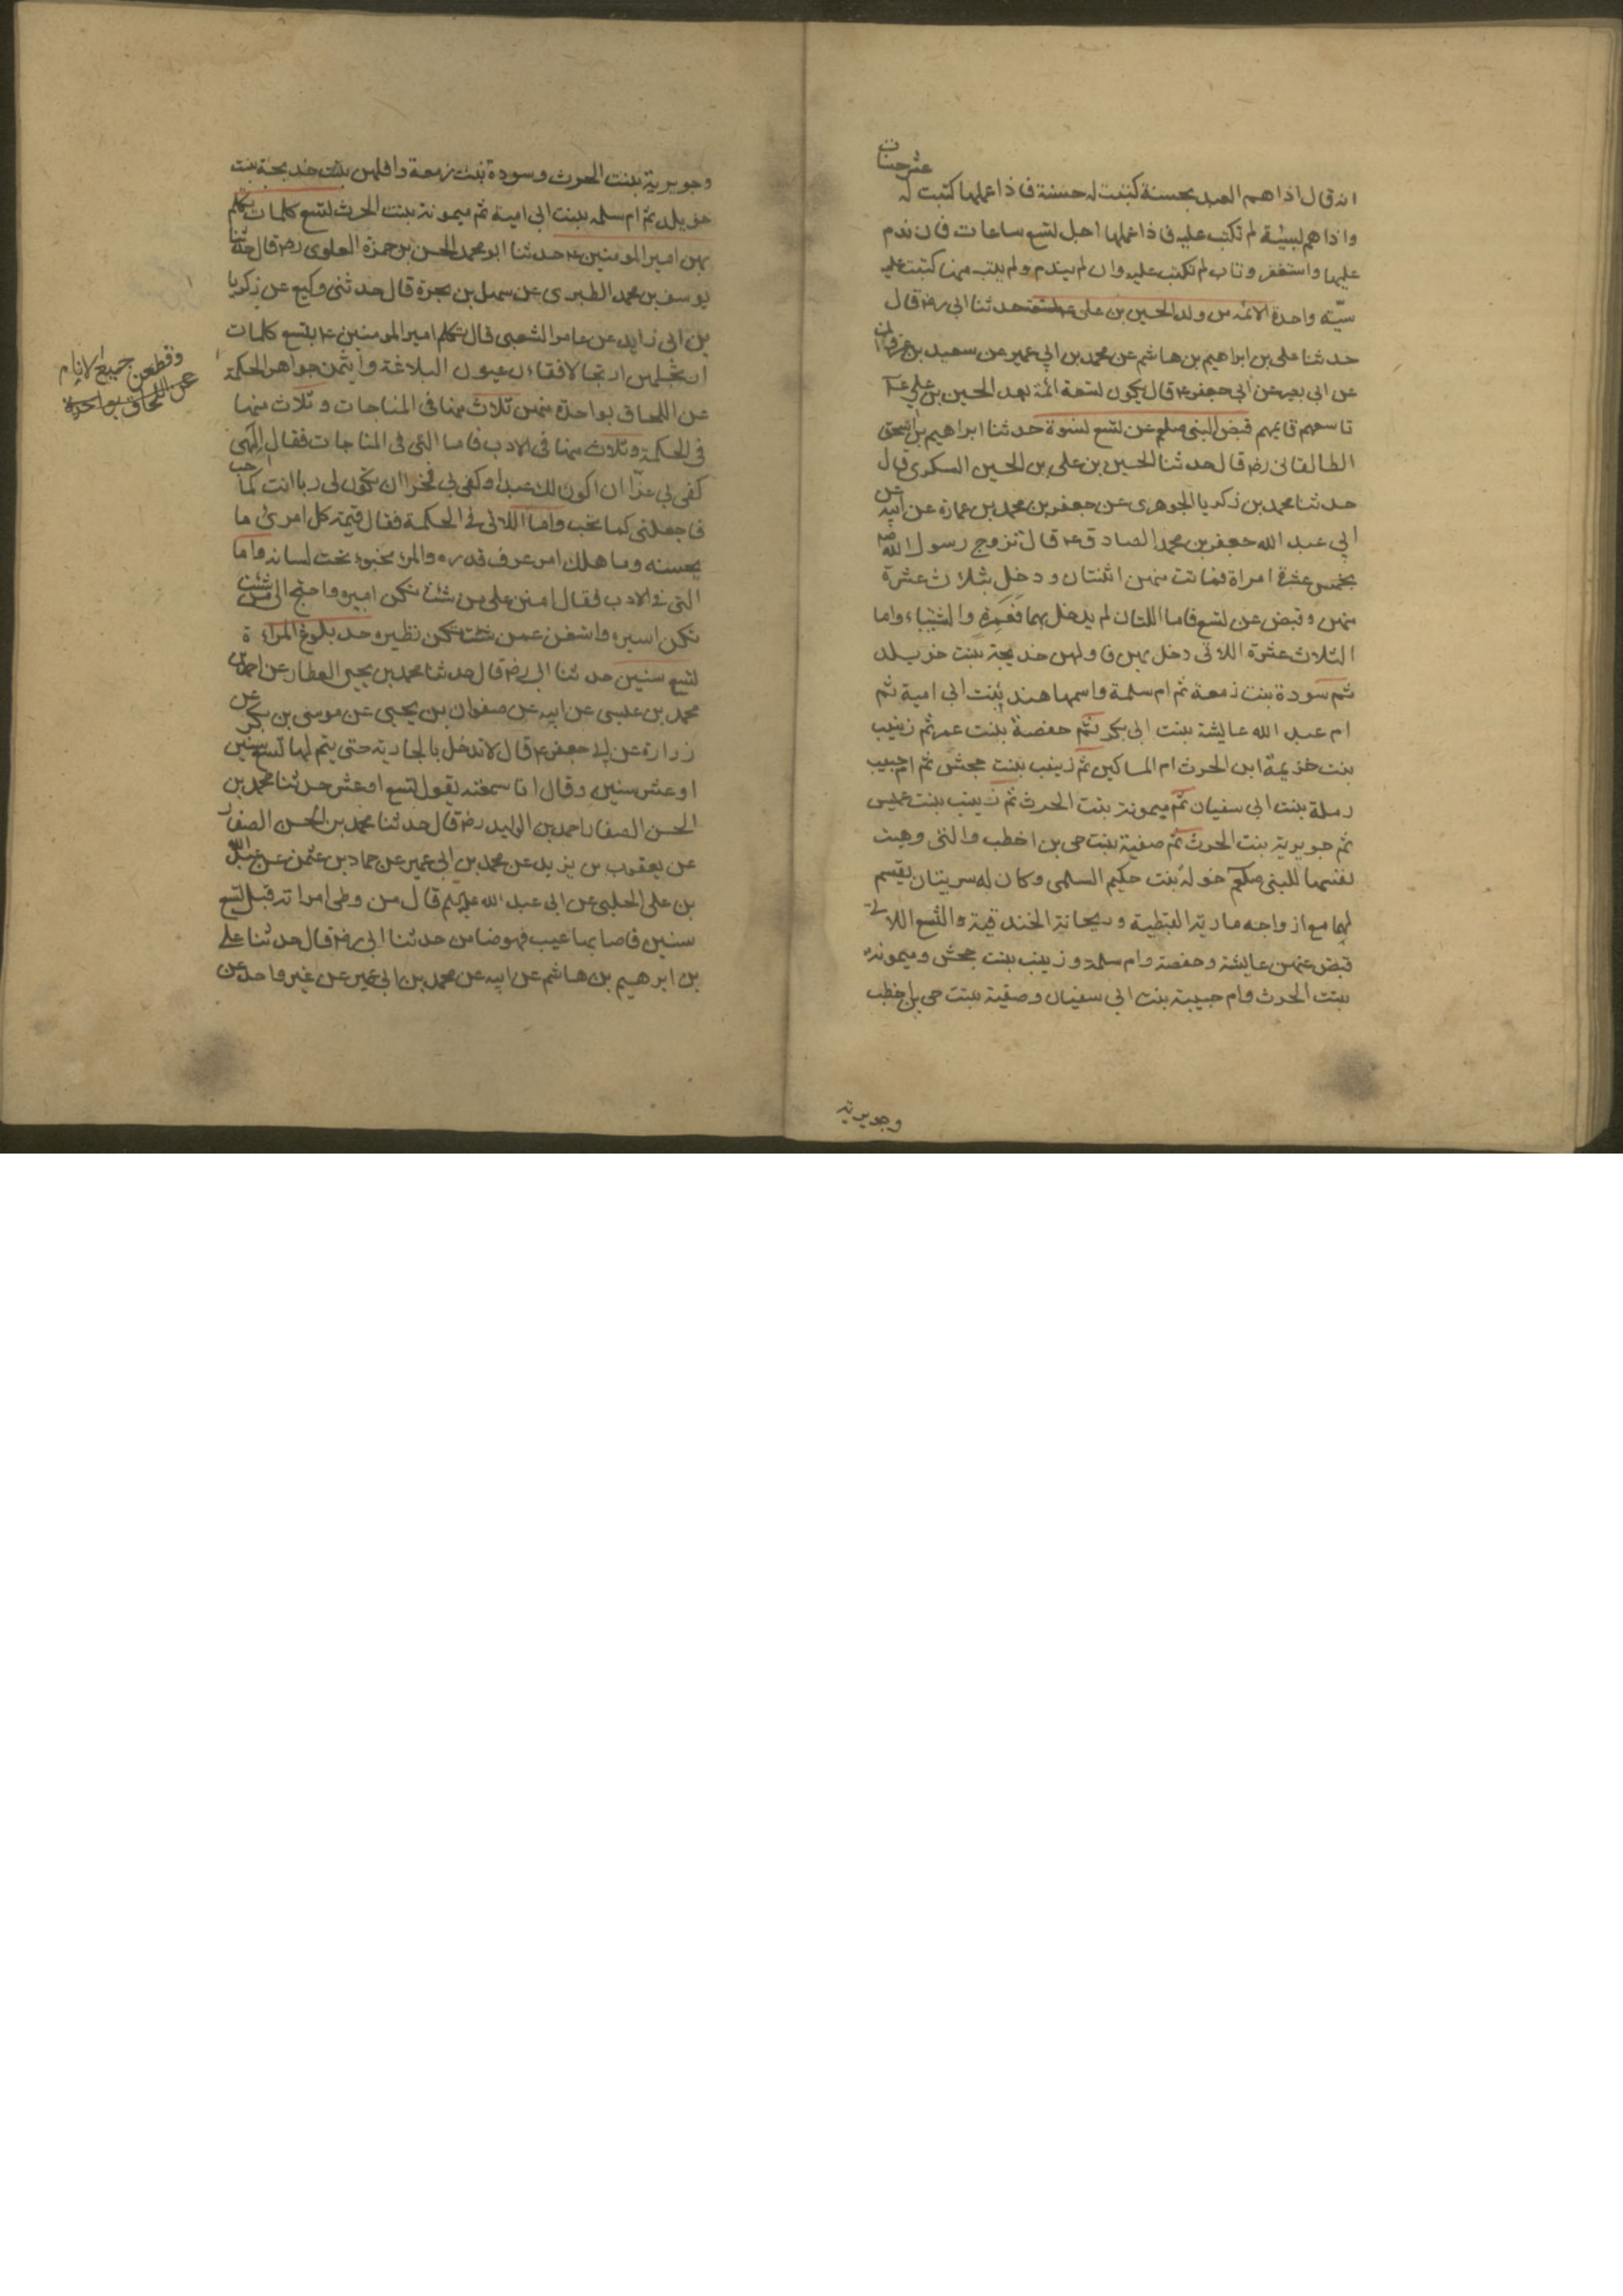 عشر حسنات
انه قال اذا هم العبد بحسنة كتبت له حسنة فاذا عملها كتبت له
واذا هم بسيئة لم تكتب عليه فاذا عملها اجل لتسع ساعات فان ندم
عليها واستغفر وتاب لم تكتب عليه وان لم يندم ولم يتب منها كتبت عليه
سيّئه واحدة الائمه من ولد الحسين بن على ع تسعة حدثنا ابي رضه قال
حدثنا على بن ابراهيم بن هاشم عن محمد بن ابي عمير عن سعيد بن غزوان
عن ابى بصير عن ابي جعفر ع قال يكون تسعة ائمة بعد الحسين بن علي ع
تاسعهم قايمهم قبض النبى صلعم عن تسع نسوة حدثنا ابراهيم بن اسحق
الطالقانى رضه قال حدثنا الحسين بن على بن الحسين السكرى قال
حدثنا محمد بن زكريا الجوهرى عن جعفر بن محمد بن عمارة عن ابيه عن
ابي عبد الله جعفر بن محمد الصادق ع قال تزوج رسول الله ص
بخمس عشرة امراة فماتت منهن اثنتان ودخل بثلاث عشرة
منهن وقبض عن تسع فاما اللتان لم يدخل بهما فعمرة والشنباء واما
الثلاث عشرة اللاتى دخل بهن فاولهن خديجة بنت خويلد
ثم سودة بنت زمعة ثم ام سلمة واسمها هند بنت ابى امية ثم
ام عبد الله عايشة بنت ابى بكر ثم حفصة بنت عمر ثم زينب
بنت خزيمة ابن الحرث ام المساكين ثم زينب بنت جحش ثم ام حبيب
رملة بنت ابى سفيان ثم ميمونة بنت الحرث ثم زينب بنت عميس
ثم جويرية بنت الحرث ثم صفية بنت حى بن اخطب والتى وهبت
نفسها للنبى صلعم خولة بنت حكيم السلمى وكان له سريتان يقسم
لهما مع ازواجه مارية القبطية وريحانة الخندفية والتسع اللاتى
قبض عنهن عايشة وحفصة وام سلمة وزينب بنت جحش وميمونة
بنت الحرث وام حبيبة بنت ابى سفيان وصفية بنت حى بن اخطب
وجويرية
وجويرية بنت الحرث وسودة بنت زمعة وافلهن بنت خديجة بنت
خويلد ثم ام سلمه بنت ابى امية ثم ميمونة بنت الحرث تسع كلمات تكلم
بهن امير المومنين ع حدثنا ابو محمد الحسن بن حمزة العلوى رضه قال حدثنا
يوسف بن محمد الطبرى عن سهل بن بحرة قال حدثنى وكيع عن زكريا
بن ابى زايد عن عامر الشعبى قال تكلم امير المومنين ع بتسع كلمات
ارتجلهن ارتجالا فقاءن عيون البلاغة وايتمن جواهر الحكمة
وقطعن جميع الانام
عن اللحاق بواحدة
عن اللحاق بواحدة منهن ثلاث منها فى المناجات وثلاث منها
فى الحكمة وثلاث منها فى الادب فاما التى فى المناجات فقال الهى
كفى بي عزّا ان اكون لك عبدا وكفى بي فخرا ان تكون لى ربا انت كما احب
فاجعلنى كما تحب واما اللاتى فى الحكمة فقال قيمة كل امرئ ما
يحسنه وما هلك امر عرف قدره والمرء مخبوء تحت لسانه واما
التى فى الادب فقال امنن على من شئت تكن اميره واحتج الى من شئت
تكن اسيره واستغن عمن شئت تكن نظيره حد بلوغ المراءة
تسع سنين حدثنا ابى رضه قال حدثنا محمد بن يحيى العطار عن احمد بن
محمد بن عيسى عن ابيه عن صفوان بن يحيى عن موسى بن بكر عن
زرارة عن ابى جعفر ع قال لا تدخل بالجارية حتى يتم لها تسع سنين
او عشر سنين وقال انا سمعته يقول تسع او عشر حدثنا محمد بن
الحسن الصفار احمد بن الوليد رضه قال حدثنا محمد بن الحسن الصفار
عن يعقوب بن يزيد عن محمد بن ابى عمير عن حماد بن عثمن عن عبيد الله
بن على الحلبى عن ابى عبد الله عليكم قال من وطى امراته قبل تسع
سنين فاصابها عيب فهو ضامن حدثنا ابى رضه قال حدثنا على
بن ابرهيم بن هاشم عن ابيه عن محمد بن ابى عمير عن غير واحد عن